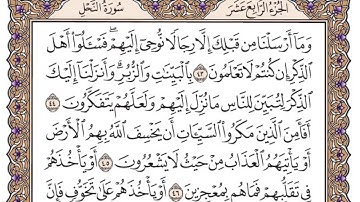 الجزء الرابع عشر
سورة النحل
وَمَا أَرْسَلْنَا مِن قَبْلِكَ إِلَّا رِجَالًا نُّوحِي إِلَيْهِمْ ۖ فَسْـَٔلُوٓا۟ أَهْلَ
الذِّكْرِ إِن كُنتُمْ لَا تَعْلَمُونَ ٤٣ بِالْبَيِّنَاتِ وَالزُّبُرِ ۗ وَأَنزَلْنَا إِلَيْكَ
الذِّكْرَ لِتُبَيِّنَ لِلنَّاسِ مَا نُزِّلَ إِلَيْهِمْ وَلَعَلَّهُمْ يَتَفَكَّرُونَ ٤٤
أَفَأَمِنَ الَّذِينَ مَكَرُوا السَّيِّـَٔاتِ أَن يَخْسِفَ اللَّهُ بِهِمُ الْأَرْضَ
أَوْ يَأْتِيَهُمُ الْعَذَابُ مِنْ حَيْثُ لَا يَشْعُرُونَ ٤٥ أَوْ يَأْخُذَهُمْ
فِي تَقَلُّبِهِمْ فَمَا هُم بِمُعْجِزِينَ ٤٦ أَوْ يَأْخُذَهُمْ عَلَىٰ تَخَوُّفٍ فَإِنَّ